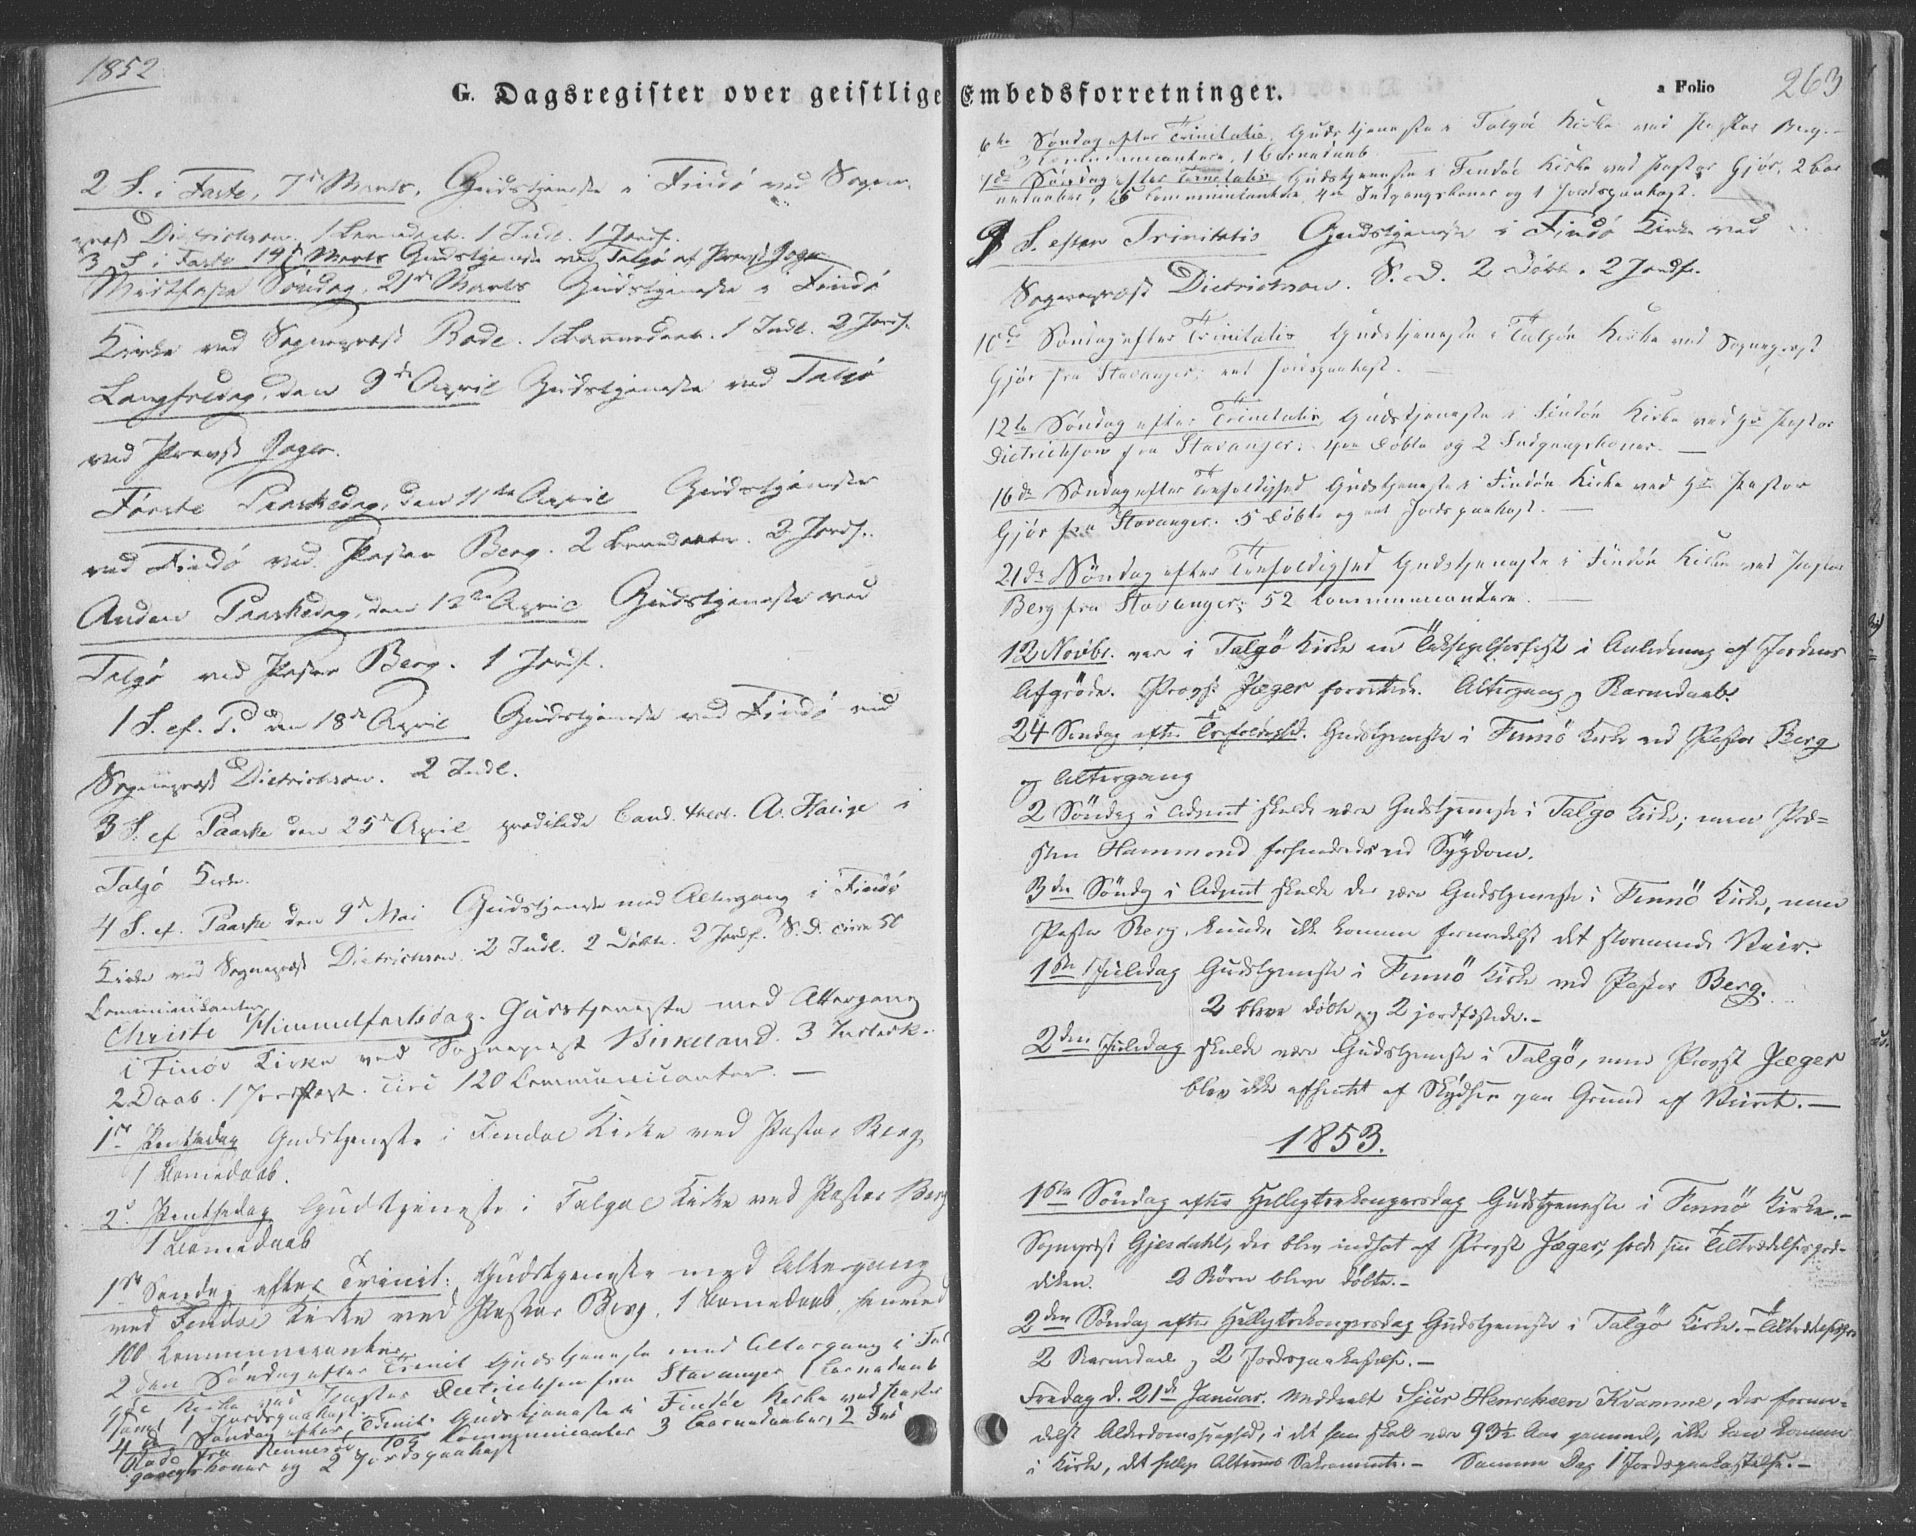 1852
G. Dagsregister over geistlige
2 S. i Faste, 7de Marts, Gudstjeneste i Findö ved Sogne-
præst Dietrichson. 1 Barnedaab. 1 Indl. 1 Jordf.
3 S. i Faste 14de Marts Gudstjeneste ved Talgö af Provst Jæger
Midtfaste Söndag, 21de Marts Gudstjeneste i Findö
Kirke ved Sognepræst Rode. 1 Barnedaab. 1 Indl. 2 Jordf.
Langfredag, den 9de April Gudstjeneste ved Talgö
ved Provst Jæger.
Förste Paaskedag, den 11te April Gudstjeneste
ved Findö ved Pastor Berg. 2 Barnedaab. 2 Jordf.
Anden Paaskedag, den 12te April Gudstjeneste ved
Talgö ved Pastor Berg. 1 Jordf.
1 S. ef. P. den 18de April Gudstjeneste ved Findö ved
Sognepræst Dietrichson. 2 Indl.
3 S. ef. Paaske den 25de April prædikede Cand. theol. A. Hauge i
Talgö Kirke.
4 S. ef. Paaske den 9de Mai Gudstjeneste med Altergang i Findö
Kirke ved Sognepræst Dietrichson. 2 Indl. 2 Döbte. 2 Jordf. S. D. circa 50
Communikanter
Christi Himmelfartsdag. Gudstjeneste med Altergang
i Finöe Kirke ved Sognepræst Birkeland. 3 Introd.
2 Daab. 1 Jordfæst. circ 120 Communicanter. —
1ste Pintsedag Gudstjeneste i Findöe Kirke ved Pastor Berg
1 Barnedaab.
2d. Pintsedag Gudstjeneste i Talgöe Kirke ved Pastor Berg
1 Barnedaab
1ste Søndag efter Trinit. Gudstjeneste med Altergang
ved Findöe Kirke ved Pastor Berg. 1 Barnedaab, henved
100 Communicanter
2den Søndag efter Trinit Gudstjeneste med Altergang i Tal
göe Kirke ved Pastor Dietrichson fra Stavanger 1 Barnedaab
samt 1 Jordspaakast.
4de Søndag efter Trinit. Gudstjeneste i Findöe Kirke ved Pastor
Rode fra Rennesöe 103 Communicanter 3 Barnedaaber, 2 Ind
gangskoner og 2 Jordspaakast
Embedsforretninger.
a Folio 263
6te Søndag efter Trinitatis, Gudstjeneste i Talgöe Kirke ved Pastor Berg.—
3 Communicantere, 1 Barnedaab.
7de Søndag efter Trinitatis Gudstjeneste i Findöe Kirke ved Pastor Gjör, 2 Bar
nedaaber, Communicantere, 4re Indgangskoner og 1 Jordspaakast.
9 S. efter Trinitatis Gudstjeneste i Findö Kirke ved
Sognepræst Dietrichson. S. D. 2 Döbte. 2 Jordf.
10de Søndag efter Trinitatis Gudstjeneste i Talgöe Kirke ved Sognepræst
Gjör fra Stavanger, et Jordspaakast. —
12te Søndag efter Trinitatis, Gudstjeneste i Findöe Kirke ved Hr Pastor
Dietrichson fra Stavanger. 4re Döbte og 2 Indgangskoner. —
16de Søndag efter Trefoldighed Gudstjeneste i Findöe Kirke ved Hr Pastor
Gjör fra Stavanger. 5 Döbte og et Jordspaakast. —
21de Søndag efter Trefoldighed Gudstjeneste i Findöe Kirke ved Pastor
Berg fra Stavanger; 52 Communicantere. —
12 Novbr. var i Talgö Kirke en Taksigelsesfest i Anledning af Jordens
Afgröde. Provst Jæger forrettede. Altergang og Barnedaab.
24 Söndag efter Trefoldighed. Gudstjeneste i Finnö Kirke ved Pastor Berg
og Altergang
2 Söndag i Advent skulde være Gudstjeneste i Talgö Kirke; men Præ=
sten Hammond forhindredes ved Sygdom.
3die Söndg i Advent skulde der være Gudstjeneste i Finnö Kirke, men
Pastor Berg kunde ikke komme formedelst det stormende Veir.
1ste Juledag Gudstjeneste i Finnö Kirke ved Pastor Berg.
2 bleve døbte og 2 jordfæstede.—
2den Juledag skulde være Gudstjeneste i Talgö, men Provst Jæger
blev ikke afhentet af Skydsen paa Grund af Veiret.—
1853.
1ste Söndag efter Helligtrekongersdag Gudstjeneste i Finnö Kirke.—
Sognepræst Gjesdahl, der blev indsat af Provst Jæger, holdt sin Tiltrædelsespræ-
diken. 2 Börn bleve døbte.—
2den Söndag efter Helligtrekongersdag Gudstjeneste i Talgö Kirke.—
2 Barnedaab og 2 Jordspaakastelse.—
Fredag d. 21de Januar. meddeelt Sjur Henriksen Kvamme, der forme-
delst Alderdomssvaghed, i det han skal være 93½ Aar gammel, ikke kan komme
i Kirke, det hellige Alterens Sakramente.— Samme Dag 1 Jordspaakastelse.—